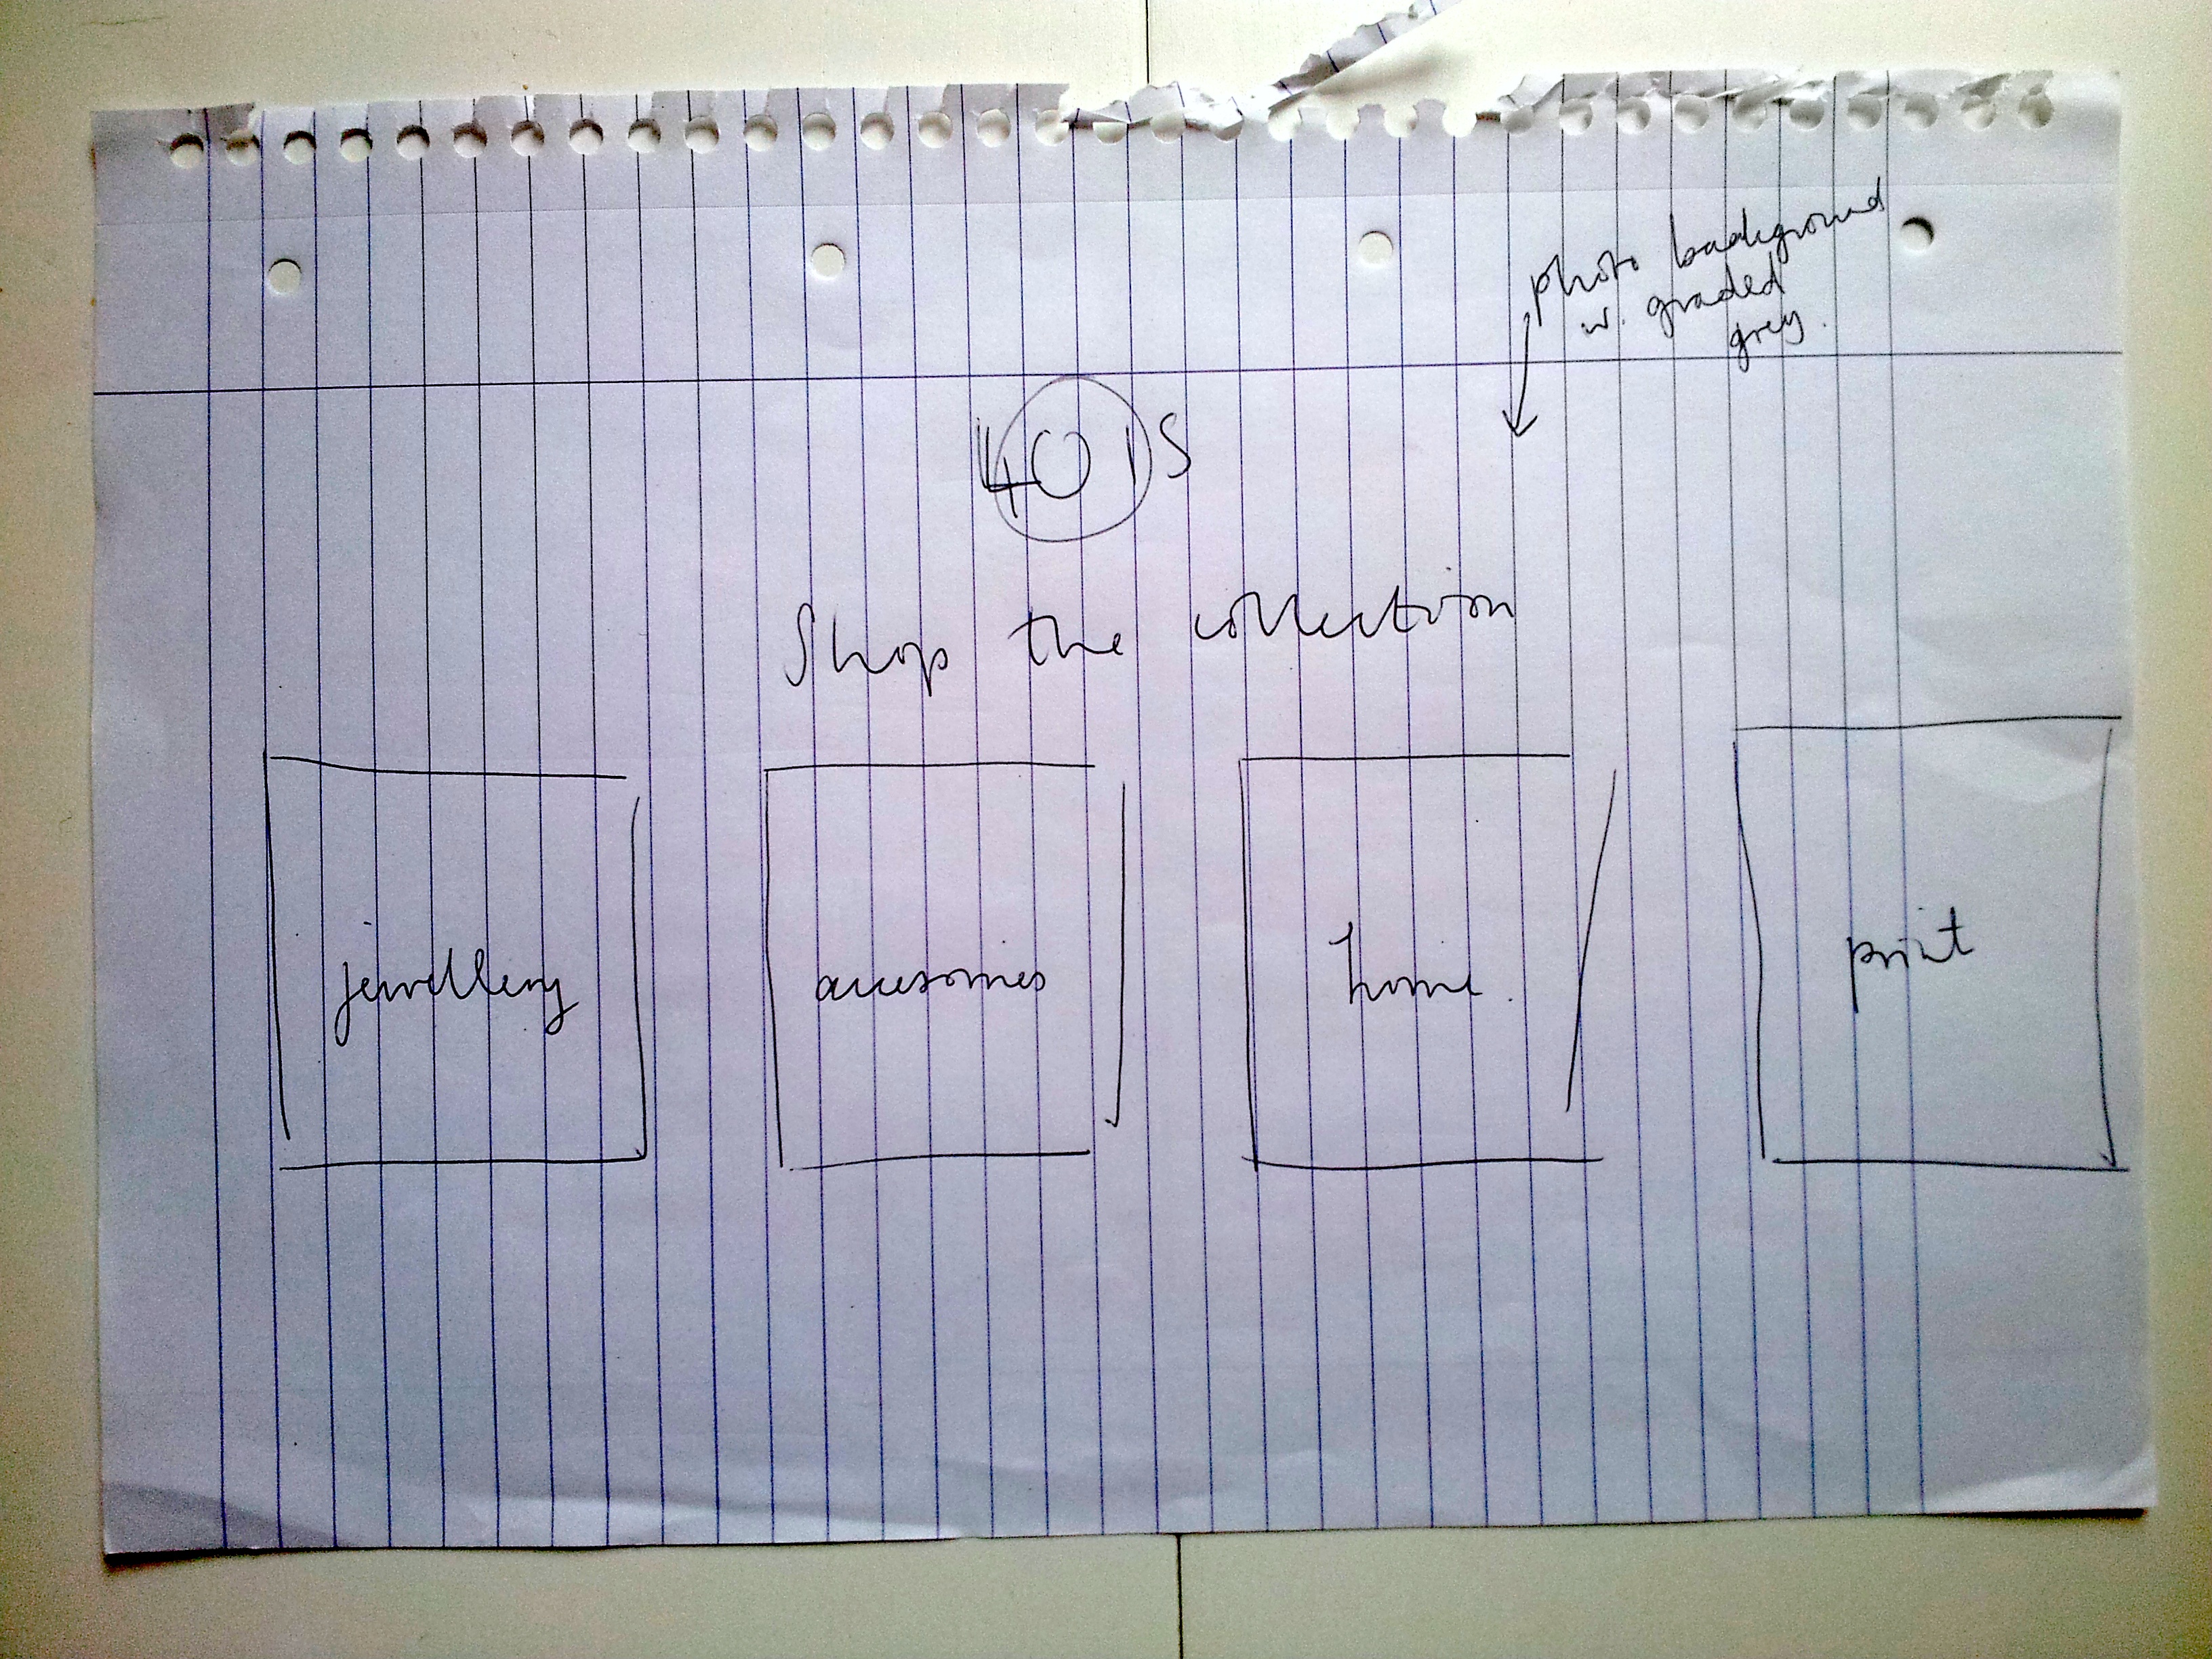 photo background
w. graded
grey.
401S
Shop the collection
jewellery
home.
print